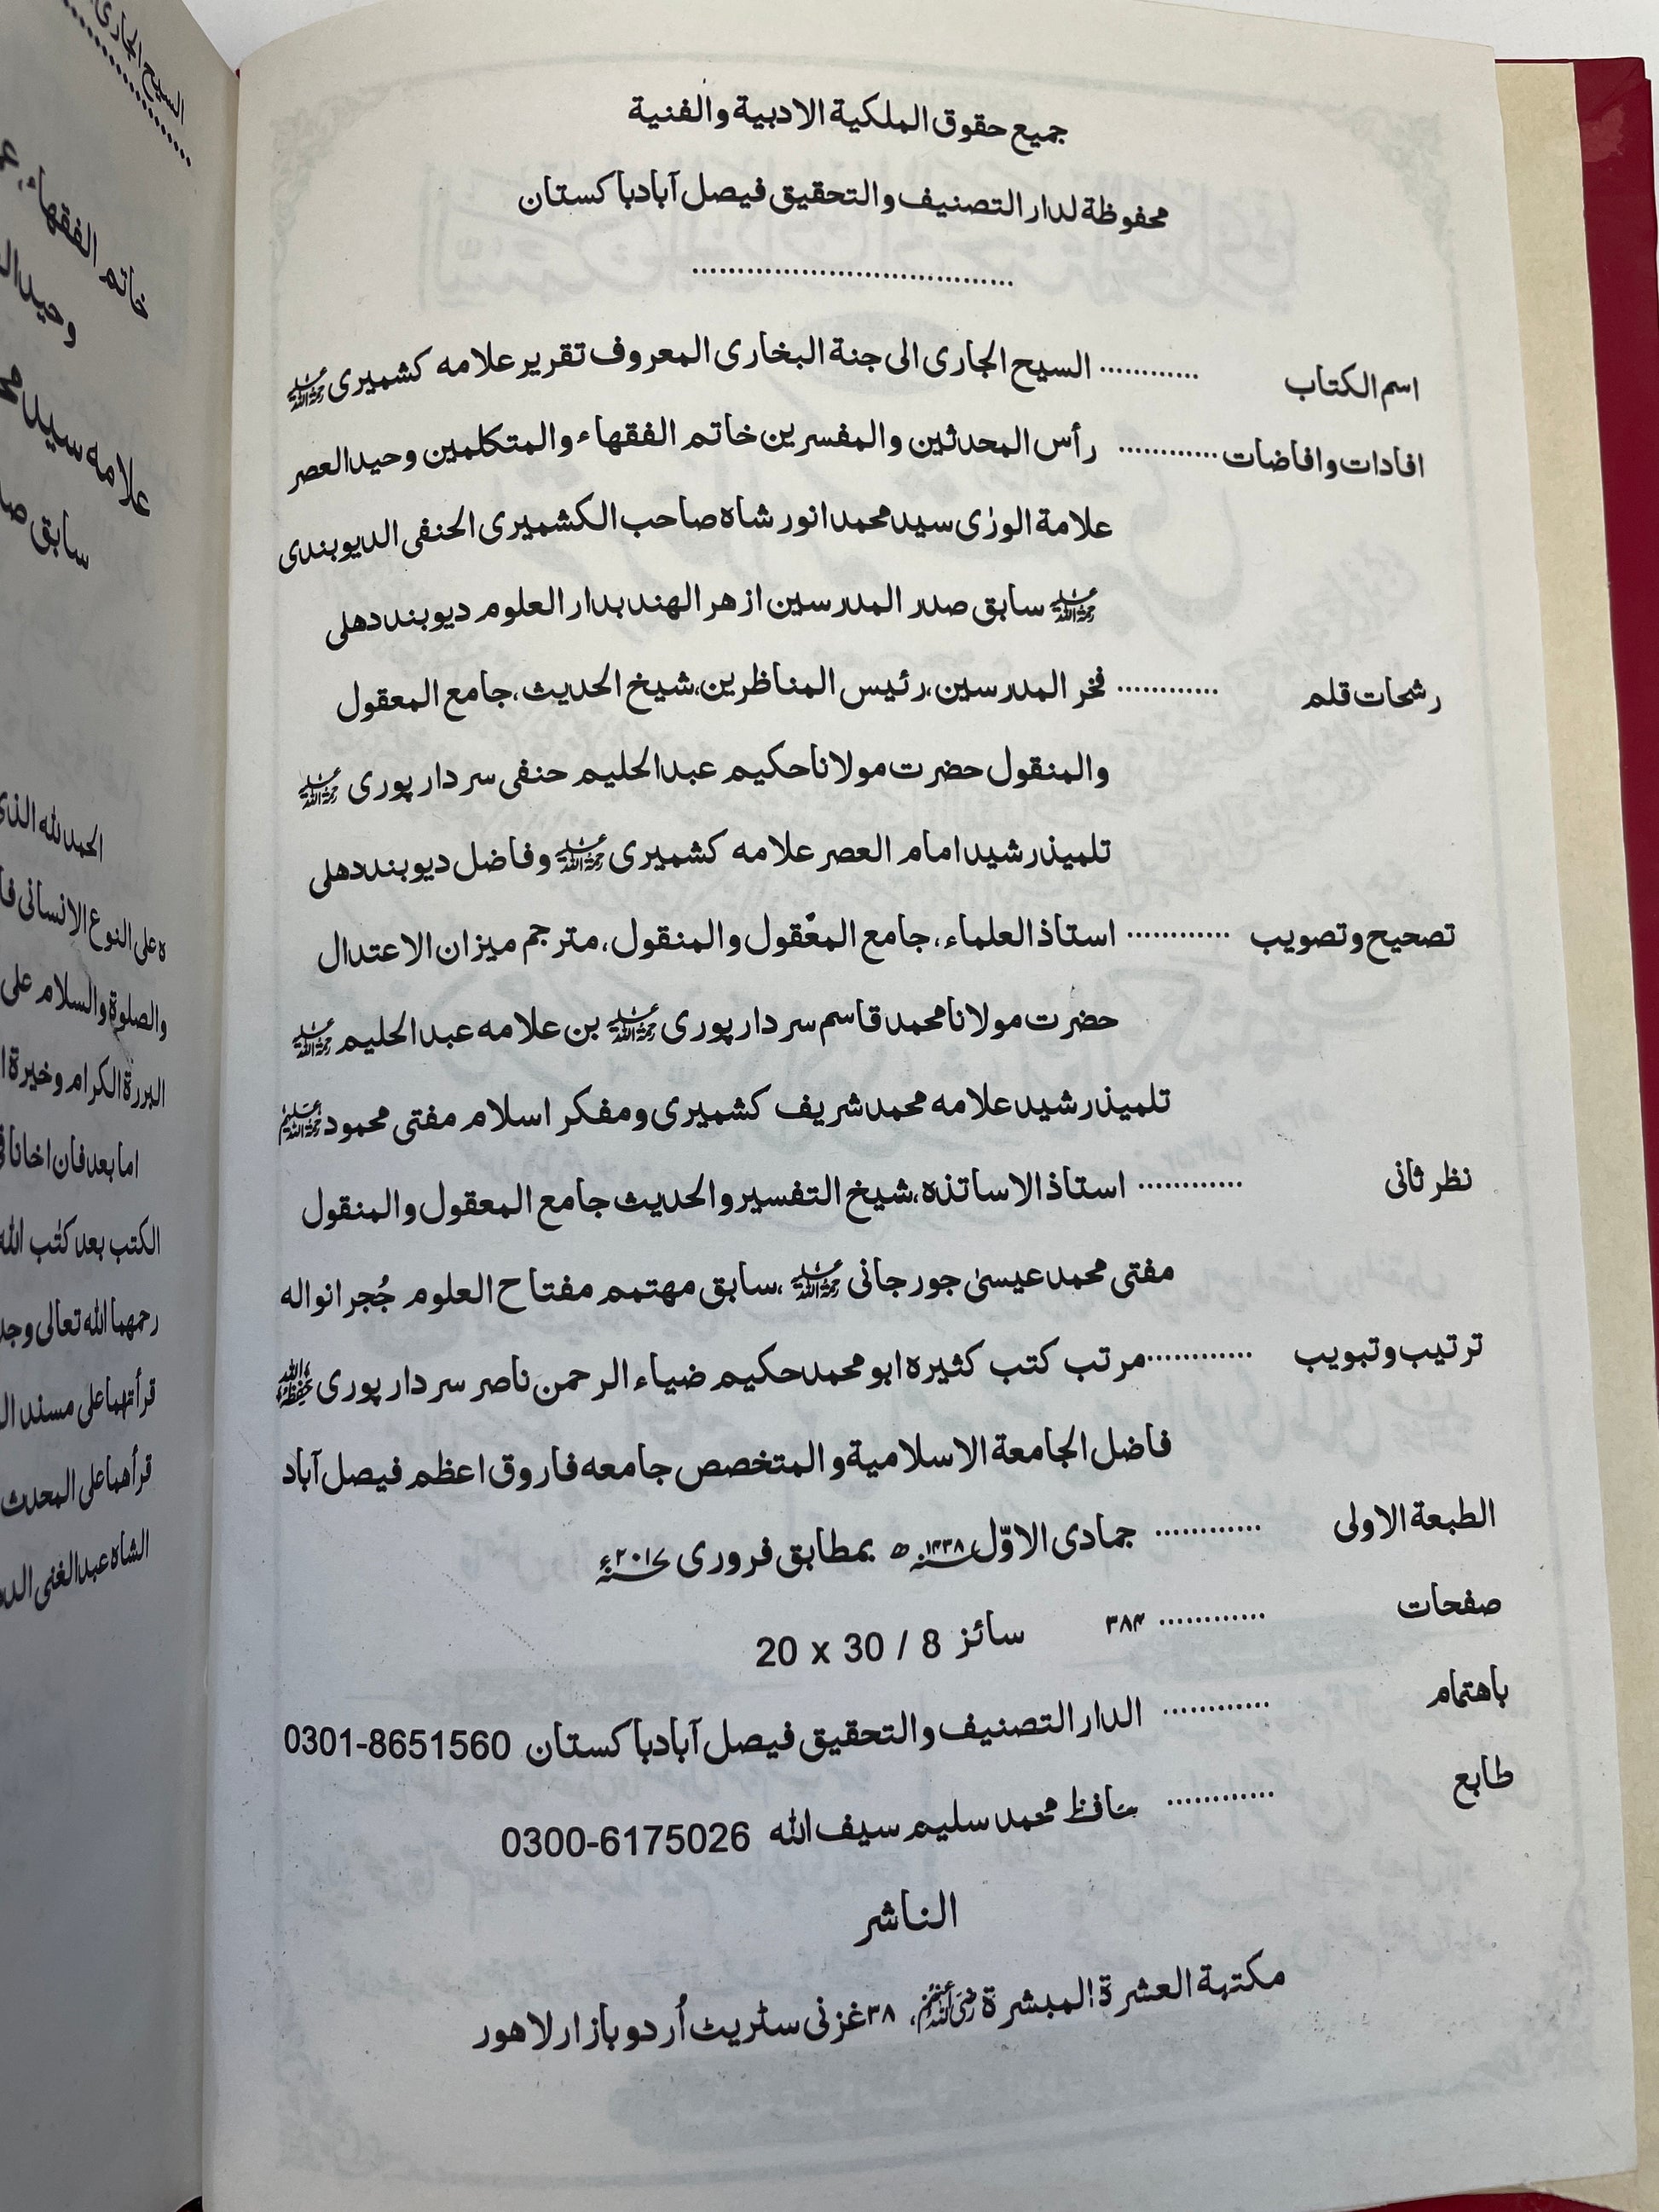 جمیع حقوق الملکیة الادبیة والفنیة
محفوظة لدار التصنیف والتحقیق فیصل آباد باکستان
اسم الکتاب ............ السیح الجاری الی جنة البخاری المعروف تقریر علامه کشمیری رحمۃ اللہ علیہ
افادات وافاضات ............ رأس المحدثین والمفسرین خاتم الفقهاء والمتکلمین وحید العصر
علامة الورٰی سید محمد انور شاه صاحب الکشمیری الحنفی الدیوبندی
رحمۃ اللہ علیہ سابق صدر المدرسین ازهر الهند بدار العلوم دیوبند دهلی
رشحات قلم ............ فخر المدرسین، رئیس المناظرین، شیخ الحدیث، جامع المعقول
والمنقول حضرت مولانا حکیم عبدالحلیم حنفی سردارپوری رحمۃ اللہ علیہ
تلمیذ رشید امام العصر علامه کشمیری رحمۃ اللہ علیہ وفاضل دیوبند دهلی
تصحیح وتصویب ............ استاذ العلماء، جامع المعقول والمنقول، مترجم میزان الاعتدال
حضرت مولانا محمد قاسم سردارپوری رحمۃ اللہ علیہ بن علامه عبدالحلیم رحمۃ اللہ علیہ
تلمیذ رشید علامه محمد شریف کشمیری ومفکر اسلام مفتی محمود
نظر ثانی ............ استاذ الاساتذه، شیخ التفسیر والحدیث جامع المعقول والمنقول
مفتی محمد عیسیٰ جورجانی رحمۃ اللہ علیہ، سابق مهتمم مفتاح العلوم جُجرانواله
ترتیب وتبویب ............ مرتب کتب کثیره ابو محمد حکیم ضیاء الرحمن ناصر سردارپوری حفظہ اللہ
فاضل الجامعة الاسلامیة والمتخصص جامعه فاروق اعظم فیصل آباد
الطبعة الاولی ............ جمادی الاوّل ۱۴۳۸ھ بمطابق فروری ۲۰۱۷ء
صفحات ............ ۳۸۴ سائز 20 x 30 / 8
باهتمام ............ الدار التصنیف والتحقیق فیصل آباد باکستان 0301-8651560
طابع ............ حافظ محمد سلیم سیف الله 0300-6175026
الناشر
مکتبة العشرة المبشرة رضی اللہ عنہم، ۳۸ غزنی سٹریٹ اُردو بازار لاهور
السیح الجاری
خاتم الفقهاء
وحید
علامه سید
سابق
الحمد لله الذی
علی النوع الإنسانی
والصلوة والسلام علی
البررة الکرام وخیرة
اما بعد فان اخانا
الکتب بعد کتٰب الله
رحمهما الله تعالی
قرأتهما علی مسند
قرأهما علی المحدث
الشاه عبد الغنی